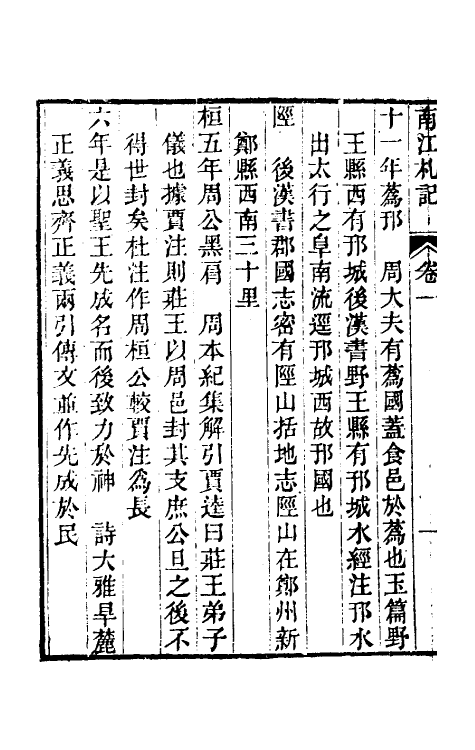 南江札記 卷一 一
十一年蒍邘 周大夫有蒍國蓋食邑於蒍也玉篇野
王縣西有邘城後漢書野王縣有邘城水經注邘水
出太行之阜南流逕邘城西故邘國也
陘 後漢書郡國志密有陘山括地志陘山在鄭州新
鄭縣西南三十里
桓五年周公黑肩 周本紀集解引賈逵曰莊王弟子
儀也據賈注則莊王以周邑封其支庶公旦之後不
得世封矣杜注作周桓公較賈注爲長
六年是以聖王先成名而後致力於神 詩大雅旱麓
正義思齊正義兩引傳文並作先成於民